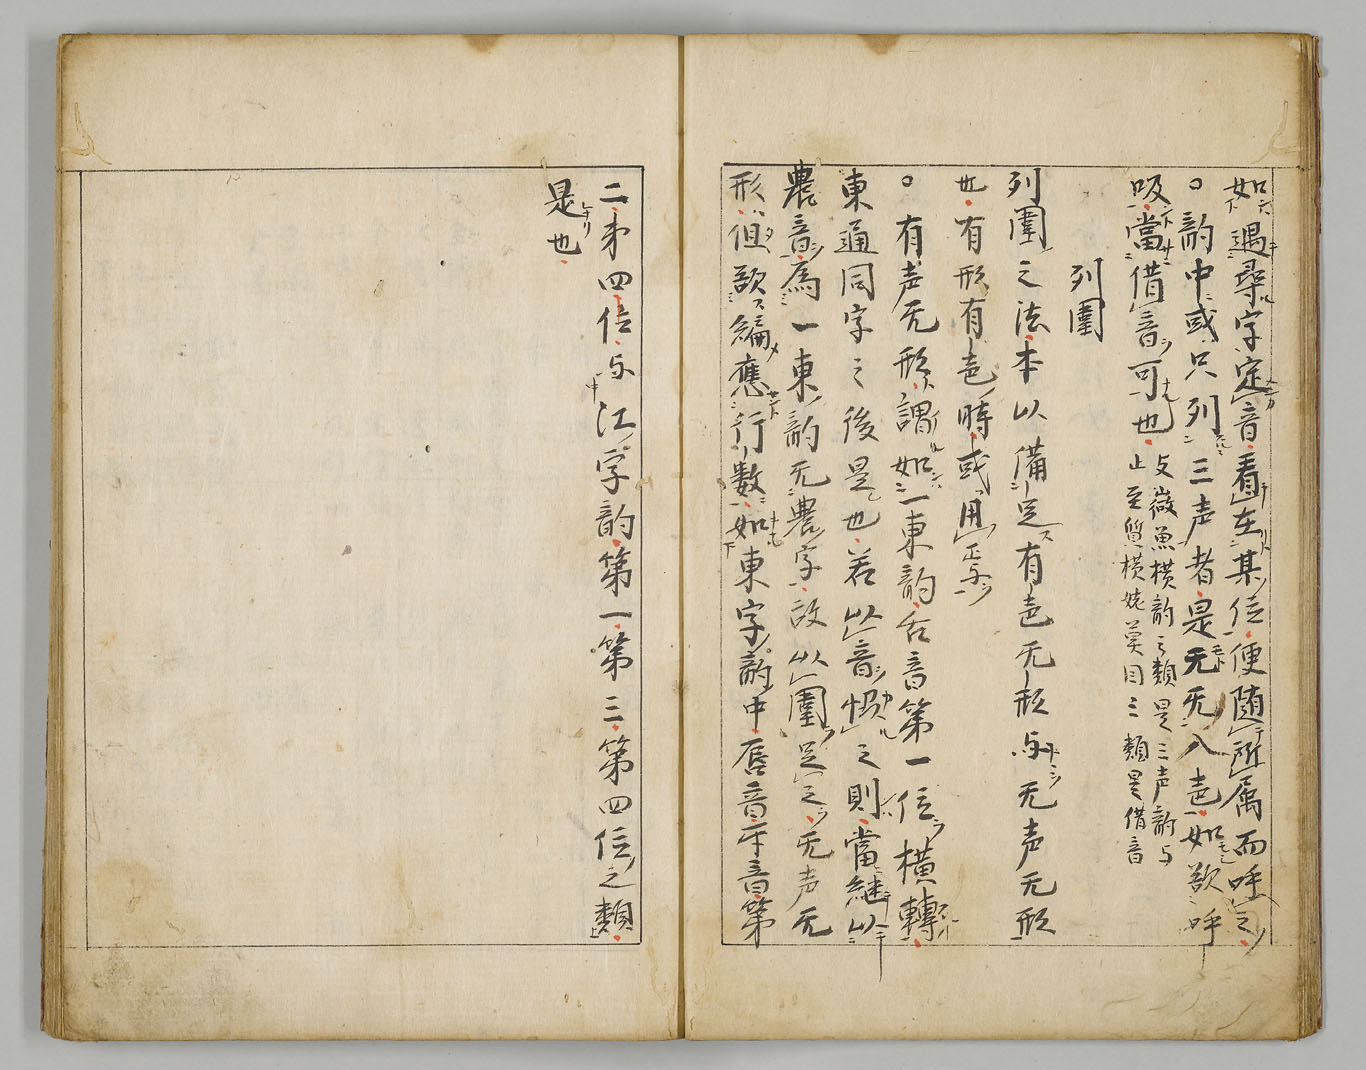 如遇尋字定音看在某位便随所属而呼之
○韵中或只列三声者是无无入声如欲呼
吸當借音可也
支微魚横韵之類是三声韵与
止至質横姥莫目三類是借音
列圍
列圍之法本以備足有声无形与无声无形
也有形有声時或用正字
○有声无形謂如一東韵舌音第一位横轉
東通同字之後是也若以音惧之則當継以
農音為一東韵无農字故以圍足之无声无
形但欲編應行数如東字韵中唇音牙音第
二第四位与江字韵第一第三第四位之類
是也